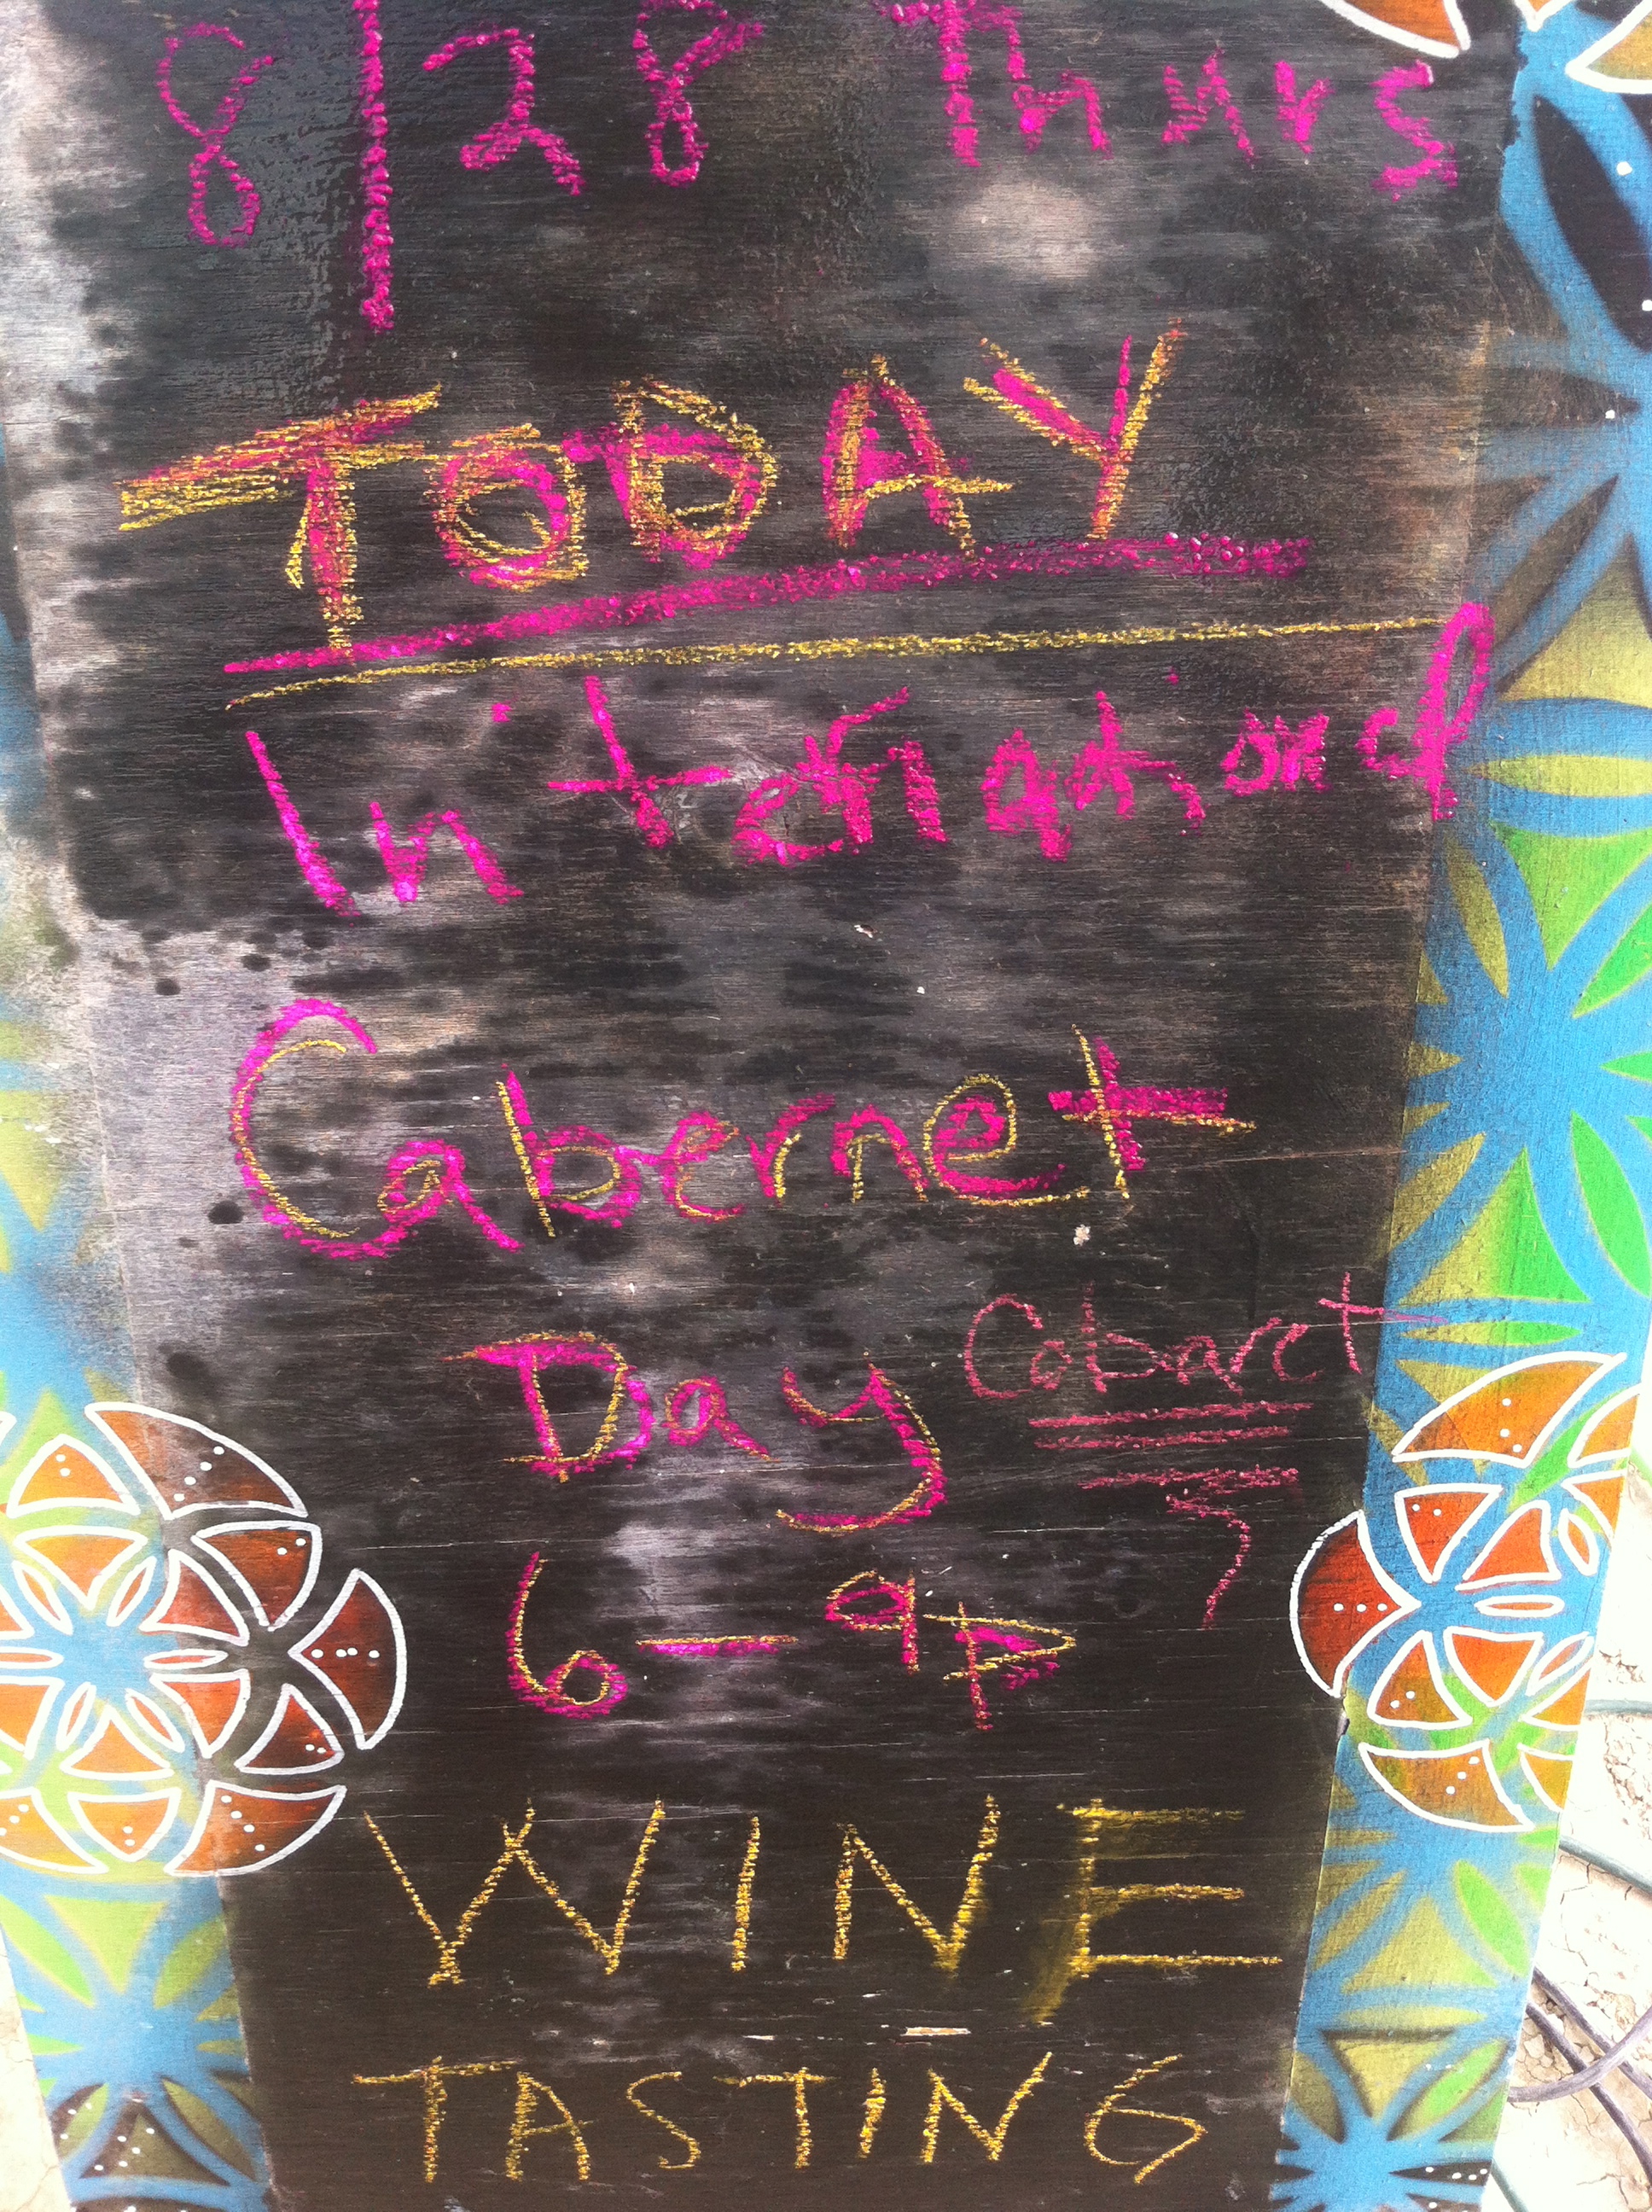 8/28 Thurs
TODAY
International
Cabernet
Day
Cabaret
6-9p
WINE
TASTING